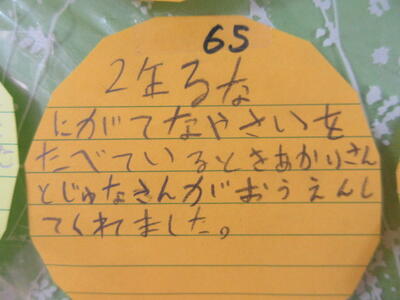 65
2年るな
にがてなやさいを
たべているときあかりさん
とじゅなさんがおうえんし
てくれました。